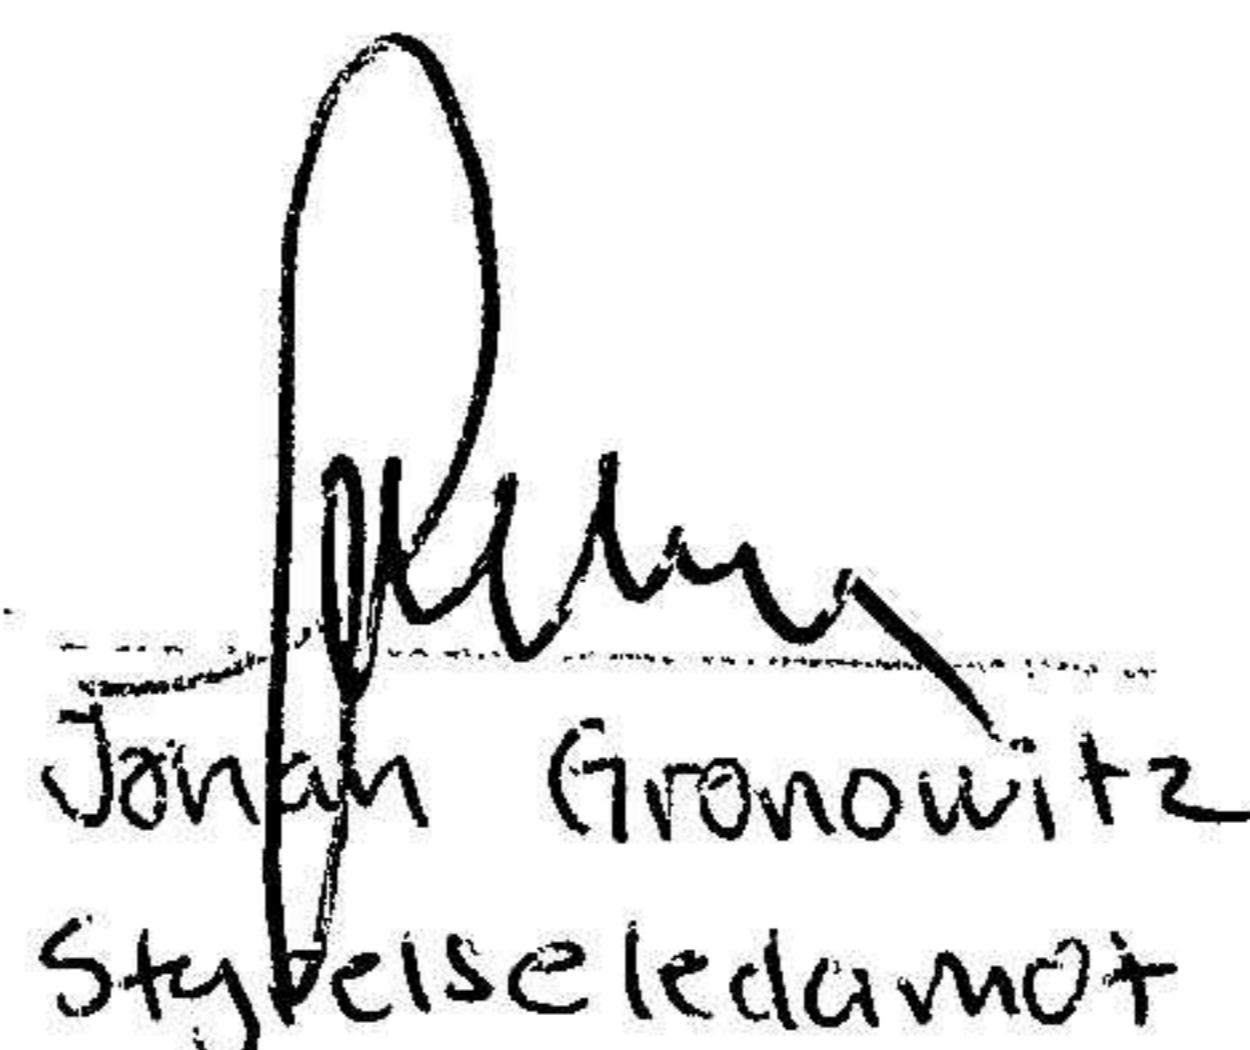 Johan Gronowitz
Styrelseledamot